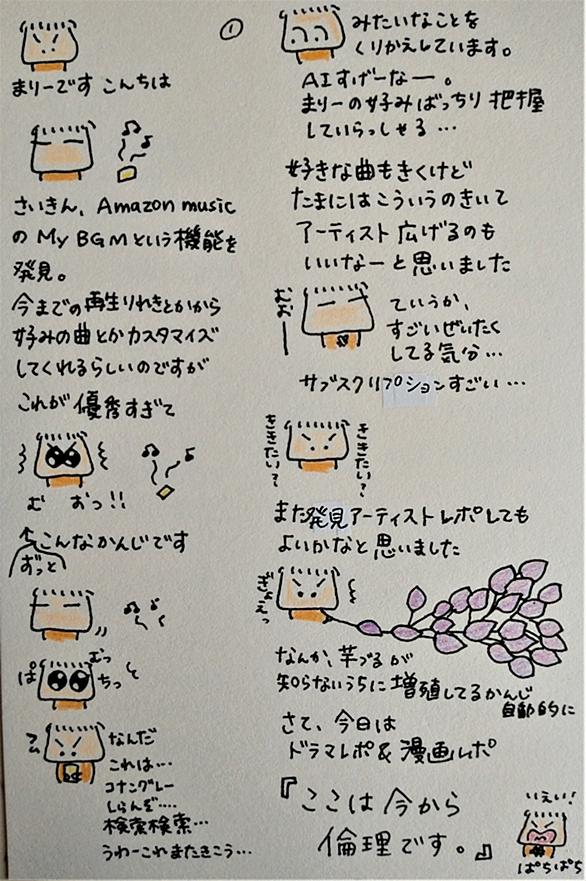 ①
まりーです こんちは
さいきん、Amazon music
の My BGMという機能を
発見。
今までの再生りれきとかから
好みの曲とかカスタマイズ
してくれるらしいのですが
これが優秀すぎて
む おっ!!
↑こんなかんじです
ずっと
ぱ
むっ
ちっ
なんだ
これは…
コナングレー
しらんぞ…
検索検索…
うわーこれまたきこう…
みたいなことを
くりかえしています。
AIすげーなー。
まりーの好みばっちり把握
していらっしゃる…
好きな曲もきくけど
たまにはこういうのきいて
アーティスト広げるのも
いいなーと思いました
むおー
ていうか、
すごいぜいたく
してる気分…
サブスクリプションすごい…
ききたい?
ききたい?
また発見アーティストレポしても
よいかなと思いました
ぎょえっ
なんか、芋づるが
知らないうちに増殖してるかんじ
自動的に
さて、今日は
ドラマレポ&漫画レポ
『ここは今から
倫理です。』
いえい!
ぱちぱち